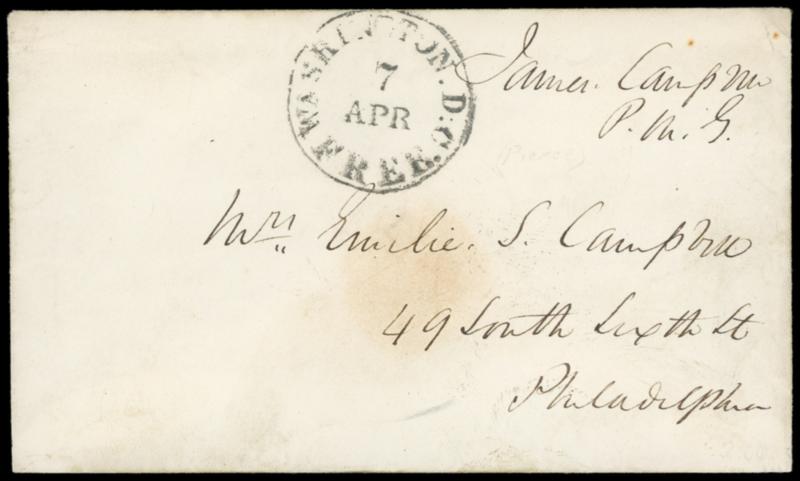 WASHINGTON. D.C. FREE.
7
APR
James. Campbell
P. M. G.
(Pierce)
Mrs Emilie. S. Campbell
49 South Sixth St
Philadelphia